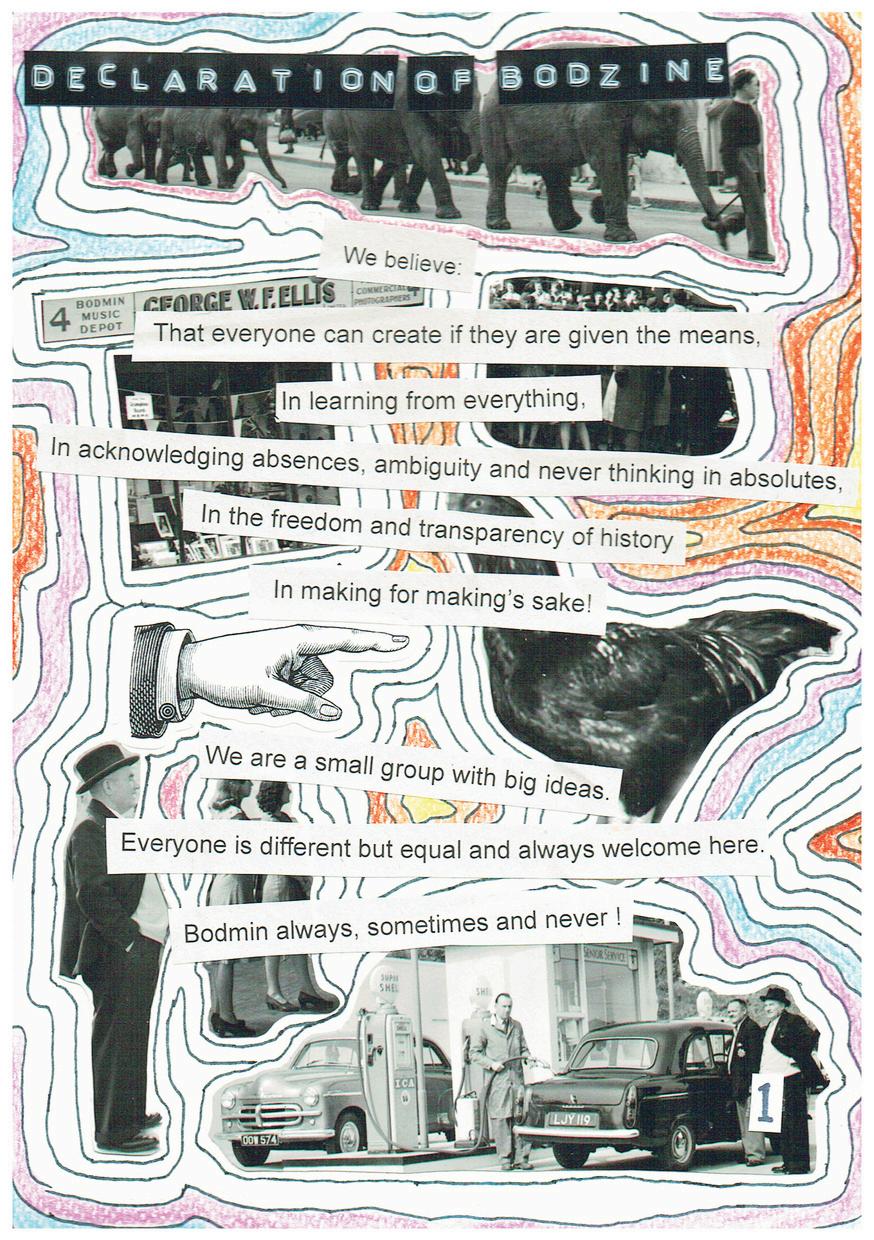 DECLARATION OF BODZINE
We believe:
4 BODMIN MUSIC DEPOT
GEORGE W.F.ELLIS
COMMERCIAL PHOTOGRAPHERS
That everyone can create if they are given the means,
In learning from everything,
In acknowledging absences, ambiguity and never thinking in absolutes,
In the freedom and transparency of history
In making for making's sake!
We are a small group with big ideas.
Everyone is different but equal and always welcome here.
Bodmin always, sometimes and never !
SENIOR SERVICE
SUPER SHELL
SHELL
ICA
OOW 574
LJY 119
1